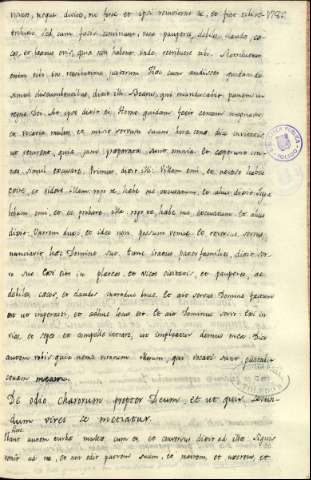 vicinos, neque divites, ne forte et ipsi reinvitent te, et fiat retri-
butio. Sed cum facis convivium, voca pauperes, debiles, claudos, cæ-
cos, et beatus eris, quia non habent unde retribuere tibi.
enim tibi in resurrectione justorum. Hæc cum audisset quidam de
simul discumbentibus, dixit illi: Beatus, qui manducabit panem in
regno Dei. At ipse dixit ei: Homo quidam fecit cœnam magnam,
et vocavit multos, et misit servum suum hora cœnæ dicere invitatis
ut venirent, quia jam parata sunt omnia, et cœperunt om-
nes simul excusare. Primus dixit illi: Villam emi, et necesse habeo
exire, et videre illam, rogo te, habe me excusatum. et alius dixit: Juga
boum emi, et eo probare illa, rogo te, habe me excusatum. Et alius
dixit: Uxorem duxi, et ideo non possum venire. Et reversus servus
nuntiavit hæc Domino suo. tunc iratus pater familias, dixit ser-
vo suo: Exi cito in plateas, et vicos civitatis, et pauperes, ac
debiles, cæcos, et claudos introduc huc. Et ait servus: Domine factum
est ut imperasti, et adhuc locus est. Et ait Dominus servo: Exi in
vias, et sepes, et compelle intrare, ut impleatur domus mea. Dico
autem vobis quia nemo virorum illorum, qui vocati sunt gustabit
cœnam meam.
De odio charorum propter Deum, et ut quis secun-
dum vires se metiatur.
Ibant autem turbæ multæ cum eo, et conversus dixit ad illos: Siquis
venit ad me, et non odit patrem suum, et matrem, et uxorem, et